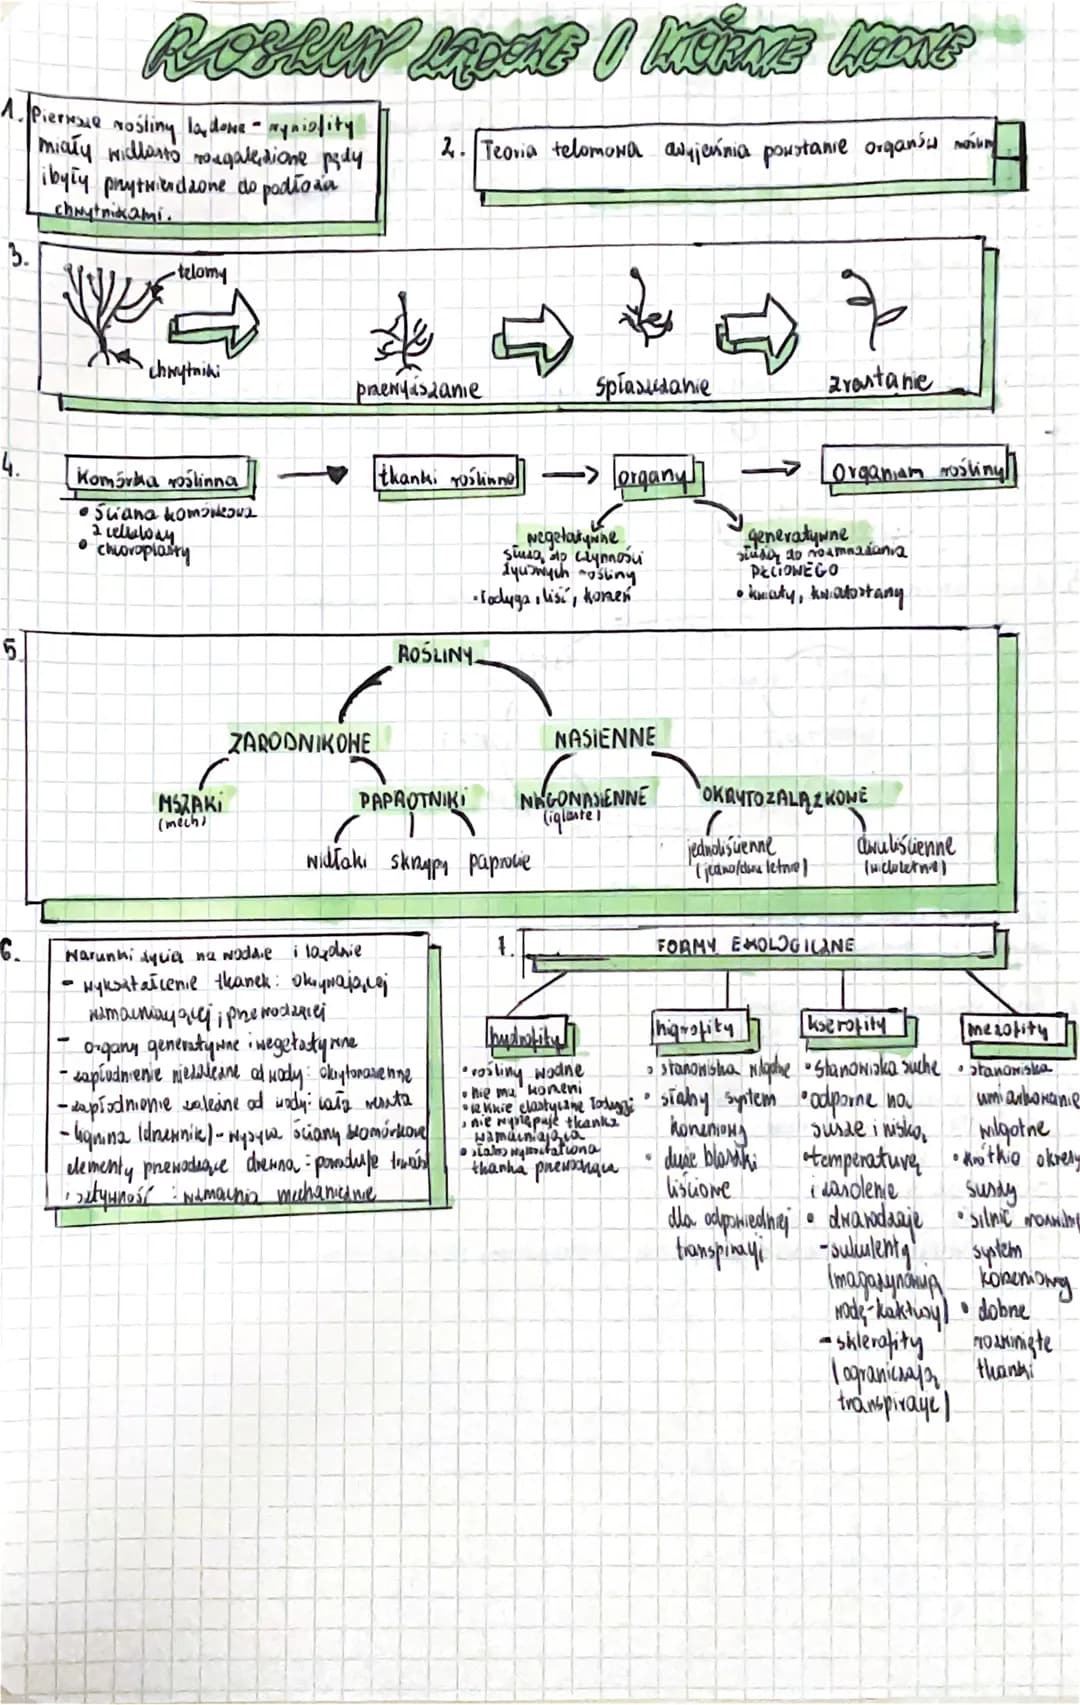 ROŚLINY LĄDOWE I WTÓRNIE WODNE
1. Pierwsze rośliny lądowe - ryniofity
miały widlasto rozgałęzione pędy
i były przytwierdzone do podłoża
chwytnikami.
2. Teoria telomowa wyjaśnia powstanie organów roślin
3.
telomy
chwytniki
przewyższanie
spłaszczanie
zrastanie
4.
Komórka roślinna
tkanki roślinne
organy
Organizm rośliny
• ściana komórkowa
z celulozy
• chloroplasty
wegetatywne
służą do czynności
życiowych rośliny
• łodyga, liść, korzeń
generatywne
służą do rozmnażania
PŁCIOWEGO
• kwiaty, kwiatostany
5.
ROŚLINY
ZARODNIKOWE
NASIENNE
MSZAKI
(mech)
PAPROTNIKI
NAGONASIENNE
(iglaste)
OKRYTOZALĄŻKOWE
widłaki skrzypy paprocie
jednoliścienne
(jedno/dwu letnie)
dwuliścienne
(wieloletnie)
6.
Warunki życia na wodzie i lądzie
- wykształcenie tkanek: okrywającej
wzmacniającej, przewodzącej
- organy generatywne i wegetatywne
- zapłodnienie niezależne od wody: okrytonasienne
- zapłodnienie zależne od wody: cała reszta
- lignina (drzewnik) - wysyca ściany komórkowe
elementy przewodzące drewna: powoduje
sztywność: wzmacnia mechanicznie
7.
FORMY EKOLOGICZNE
hydrofity
• rośliny wodne
• nie ma korzeni
• cienkie elastyczne łodygi
• nie występuje tkanka
wzmacniająca
• słabo wykształcona
tkanka przewodząca
higrofity
• stanowiska wilgotne
• słaby system
korzeniowy
• duże blaszki
liściowe
dla odpowiedniej
transpiracji
kserofity
• Stanowiska suche
• odporne na
suszę i niską
• temperaturę
i zasolenie
• dwa rodzaje
- sukulenty
(magazynują
wodę-kaktusy)
- sklerofity
(ograniczają
transpirację)
mezofity
• stanowiska
umiarkowanie
wilgotne
• krótkie okresy
suszy
• silnie
system
korzeniowy
• dobrze
rozwinięte
tkanki